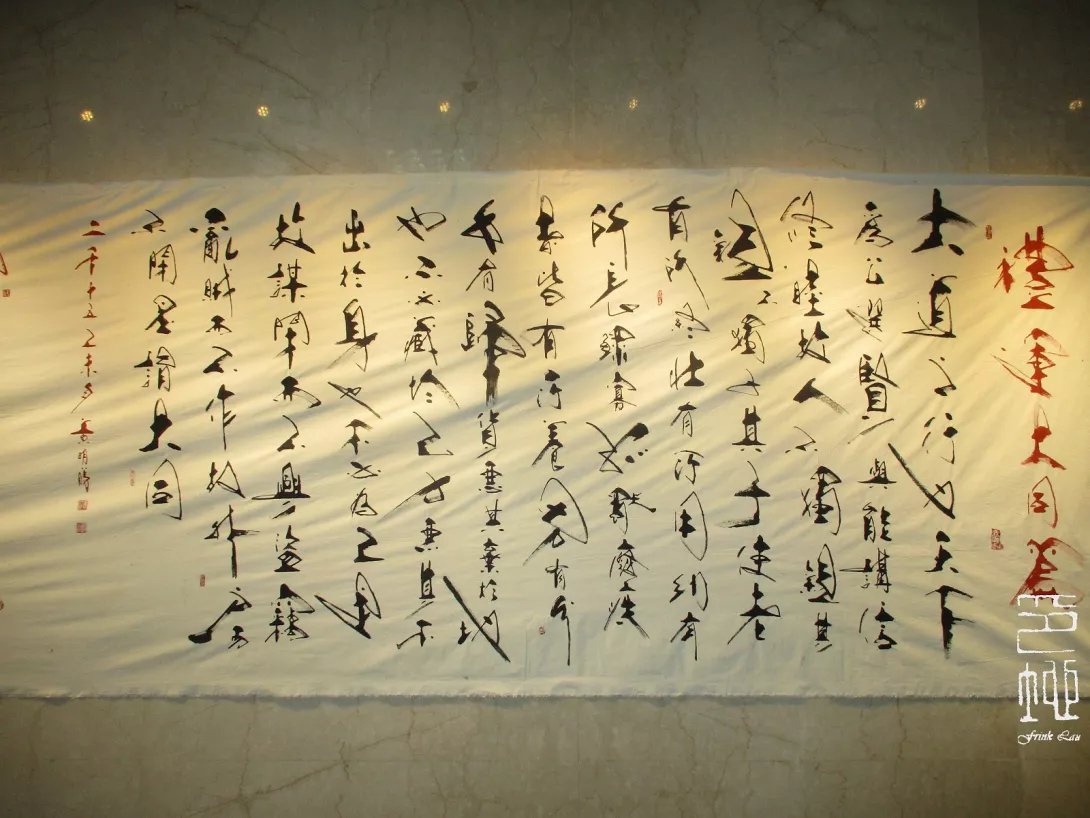 禮運大同篇
大道之行也天下
為公選賢與能講信
修睦故人不獨親其
親不獨子其子使老
有所終壯有所用幼有
所長鰥寡孤獨廢疾
者皆有所養男有分
女有歸貨惡其棄於地
也不必藏於己力惡其不
出於身也不必為己是
故謀閉而不興盜竊
亂賊而不作故外戶而
不閉是謂大同
二千十五乙未夕
Frink Lau